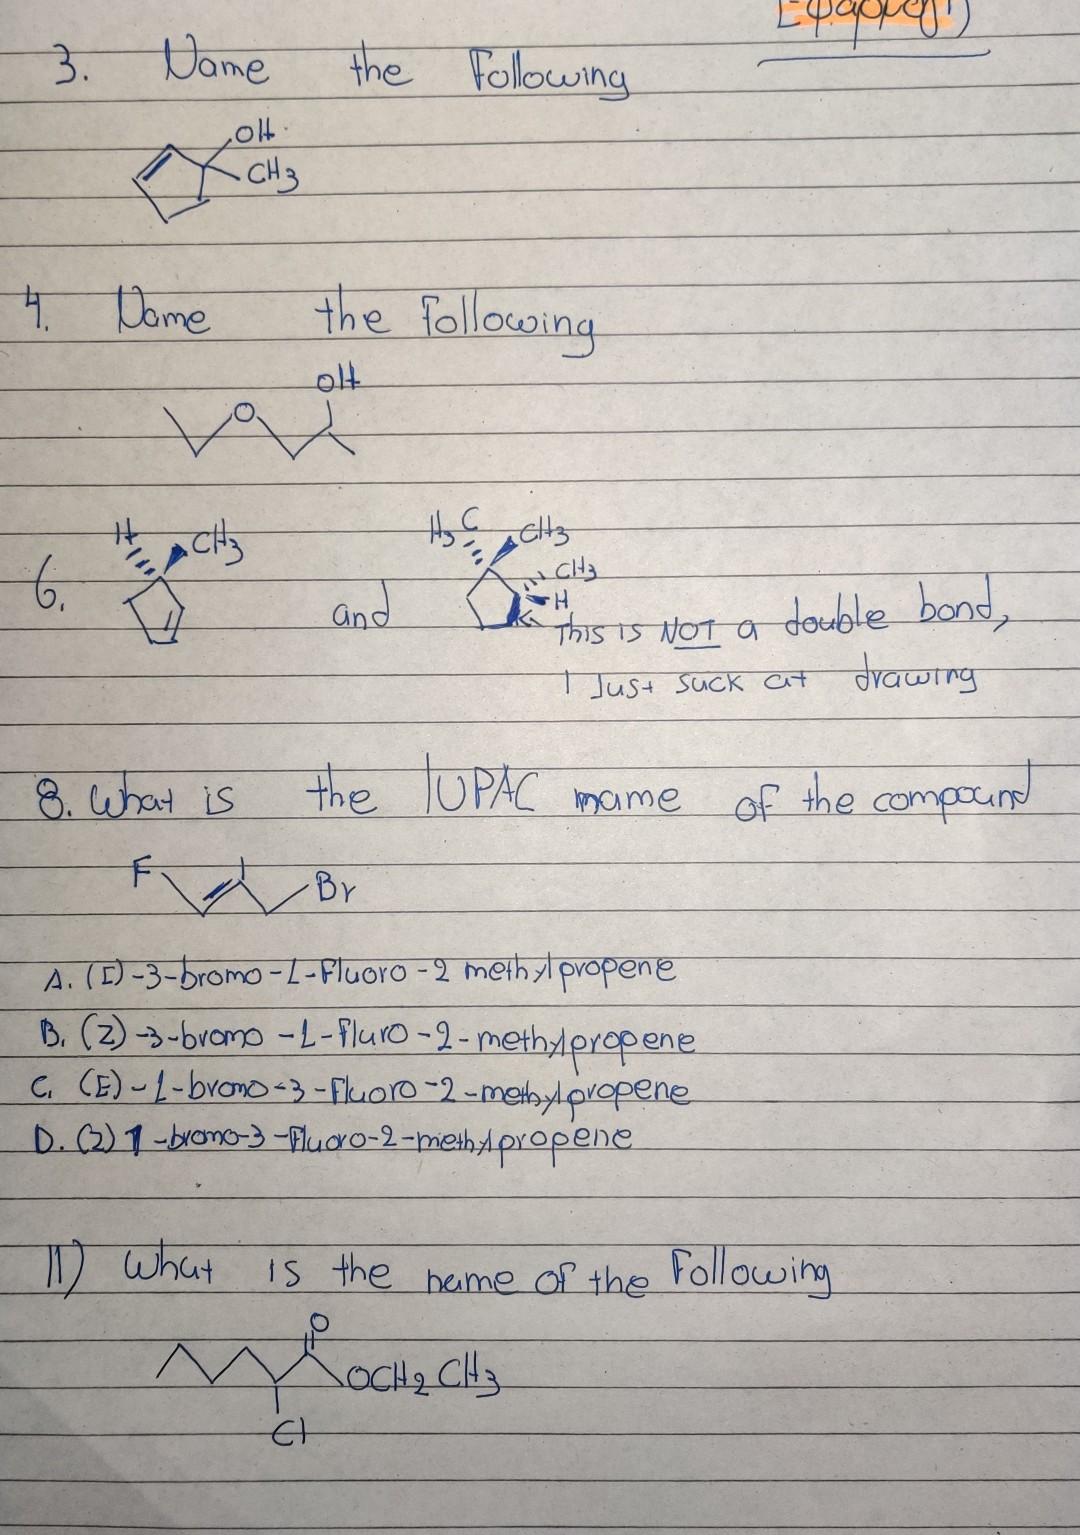 Εφαρμογή)
3. Name the Following
OH
CH3
4. Name the Following
OH
O
6. H CH3 and H3C CH3
CH3
H
This is NOT a double bond,
I Just suck at drawing
8. What is the IUPAC name of the compound
F Br
A. (E)-3-bromo-1-Fluoro-2 methylpropene
B. (Z)-3-bromo-1-fluro-2-methylpropene
C. (E)-1-bromo-3-Fluoro-2-methylpropene
D. (Z) 1-bromo-3-Fluoro-2-methylpropene
11) What is the name of the Following
O
OCH2CH3
Cl